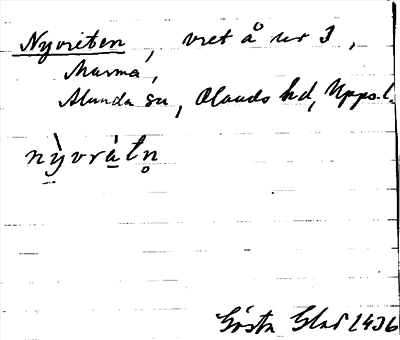 Nyvreten, vret å ur 3,
Marma,
Alunda sn, Olands hd, Uppsl.
nỳvràtn̥
Gösta Glad 1936